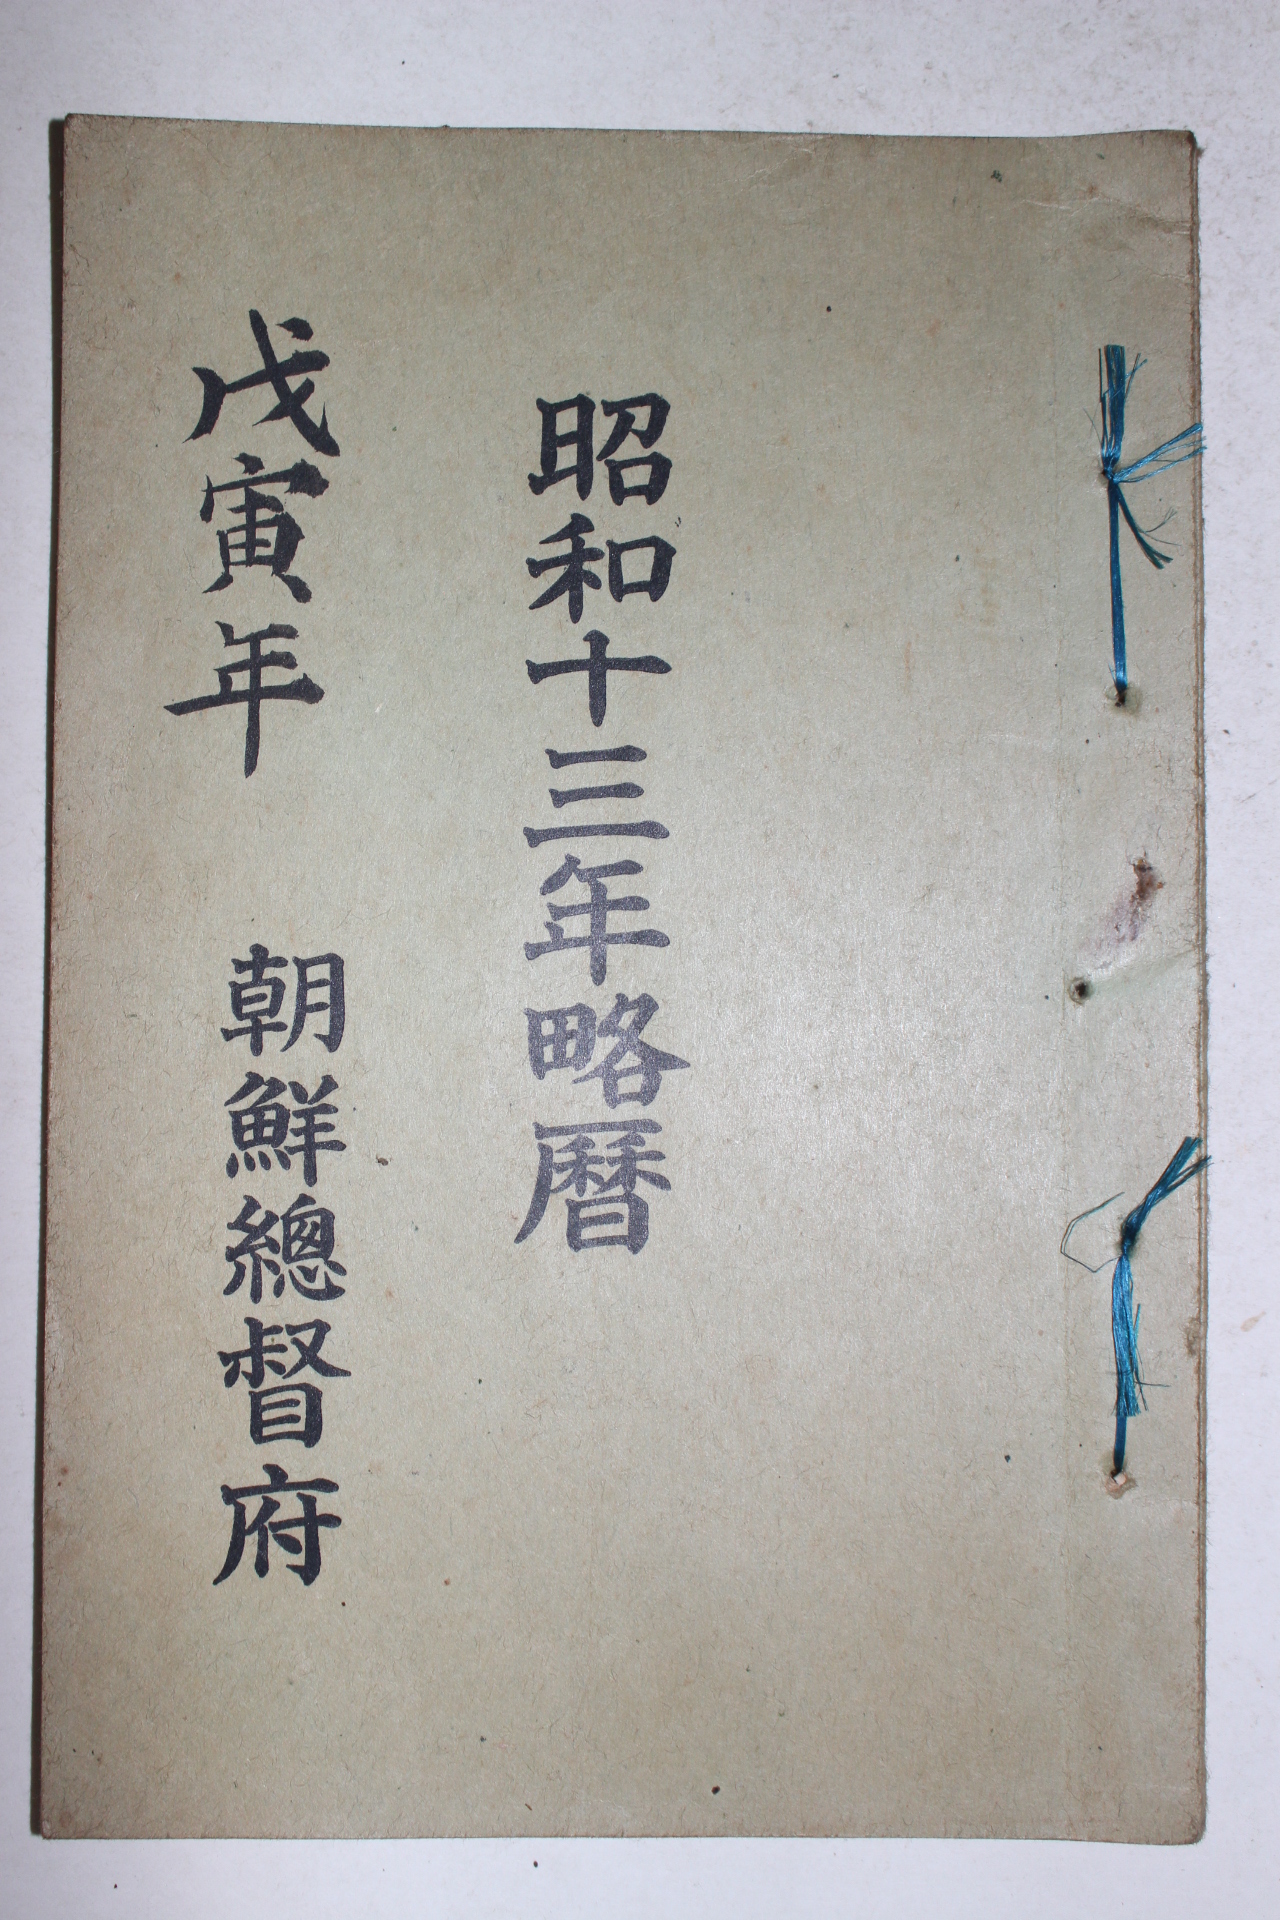 昭和十三年略曆
戊寅年
朝鮮總督府